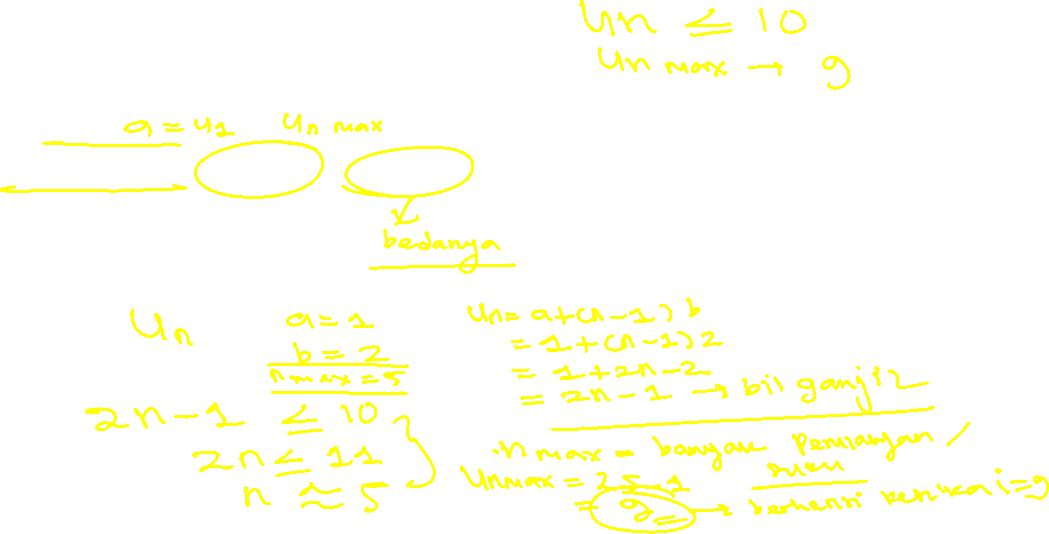 Un ≤ 10
Un max → 9
a = U1 Un max
bedanya
Un
a = 1
b = 2
n max = 5
2n - 1 ≤ 10
2n ≤ 11
n ≈ 5
Un = a + (n - 1) b
= 1 + (n - 1) 2
= 1 + 2n - 2
= 2n - 1 → bil ganjil
n max = banyak /
suku
Un max = 2.5 - 1
= 9 → berhenti ketika i = 9